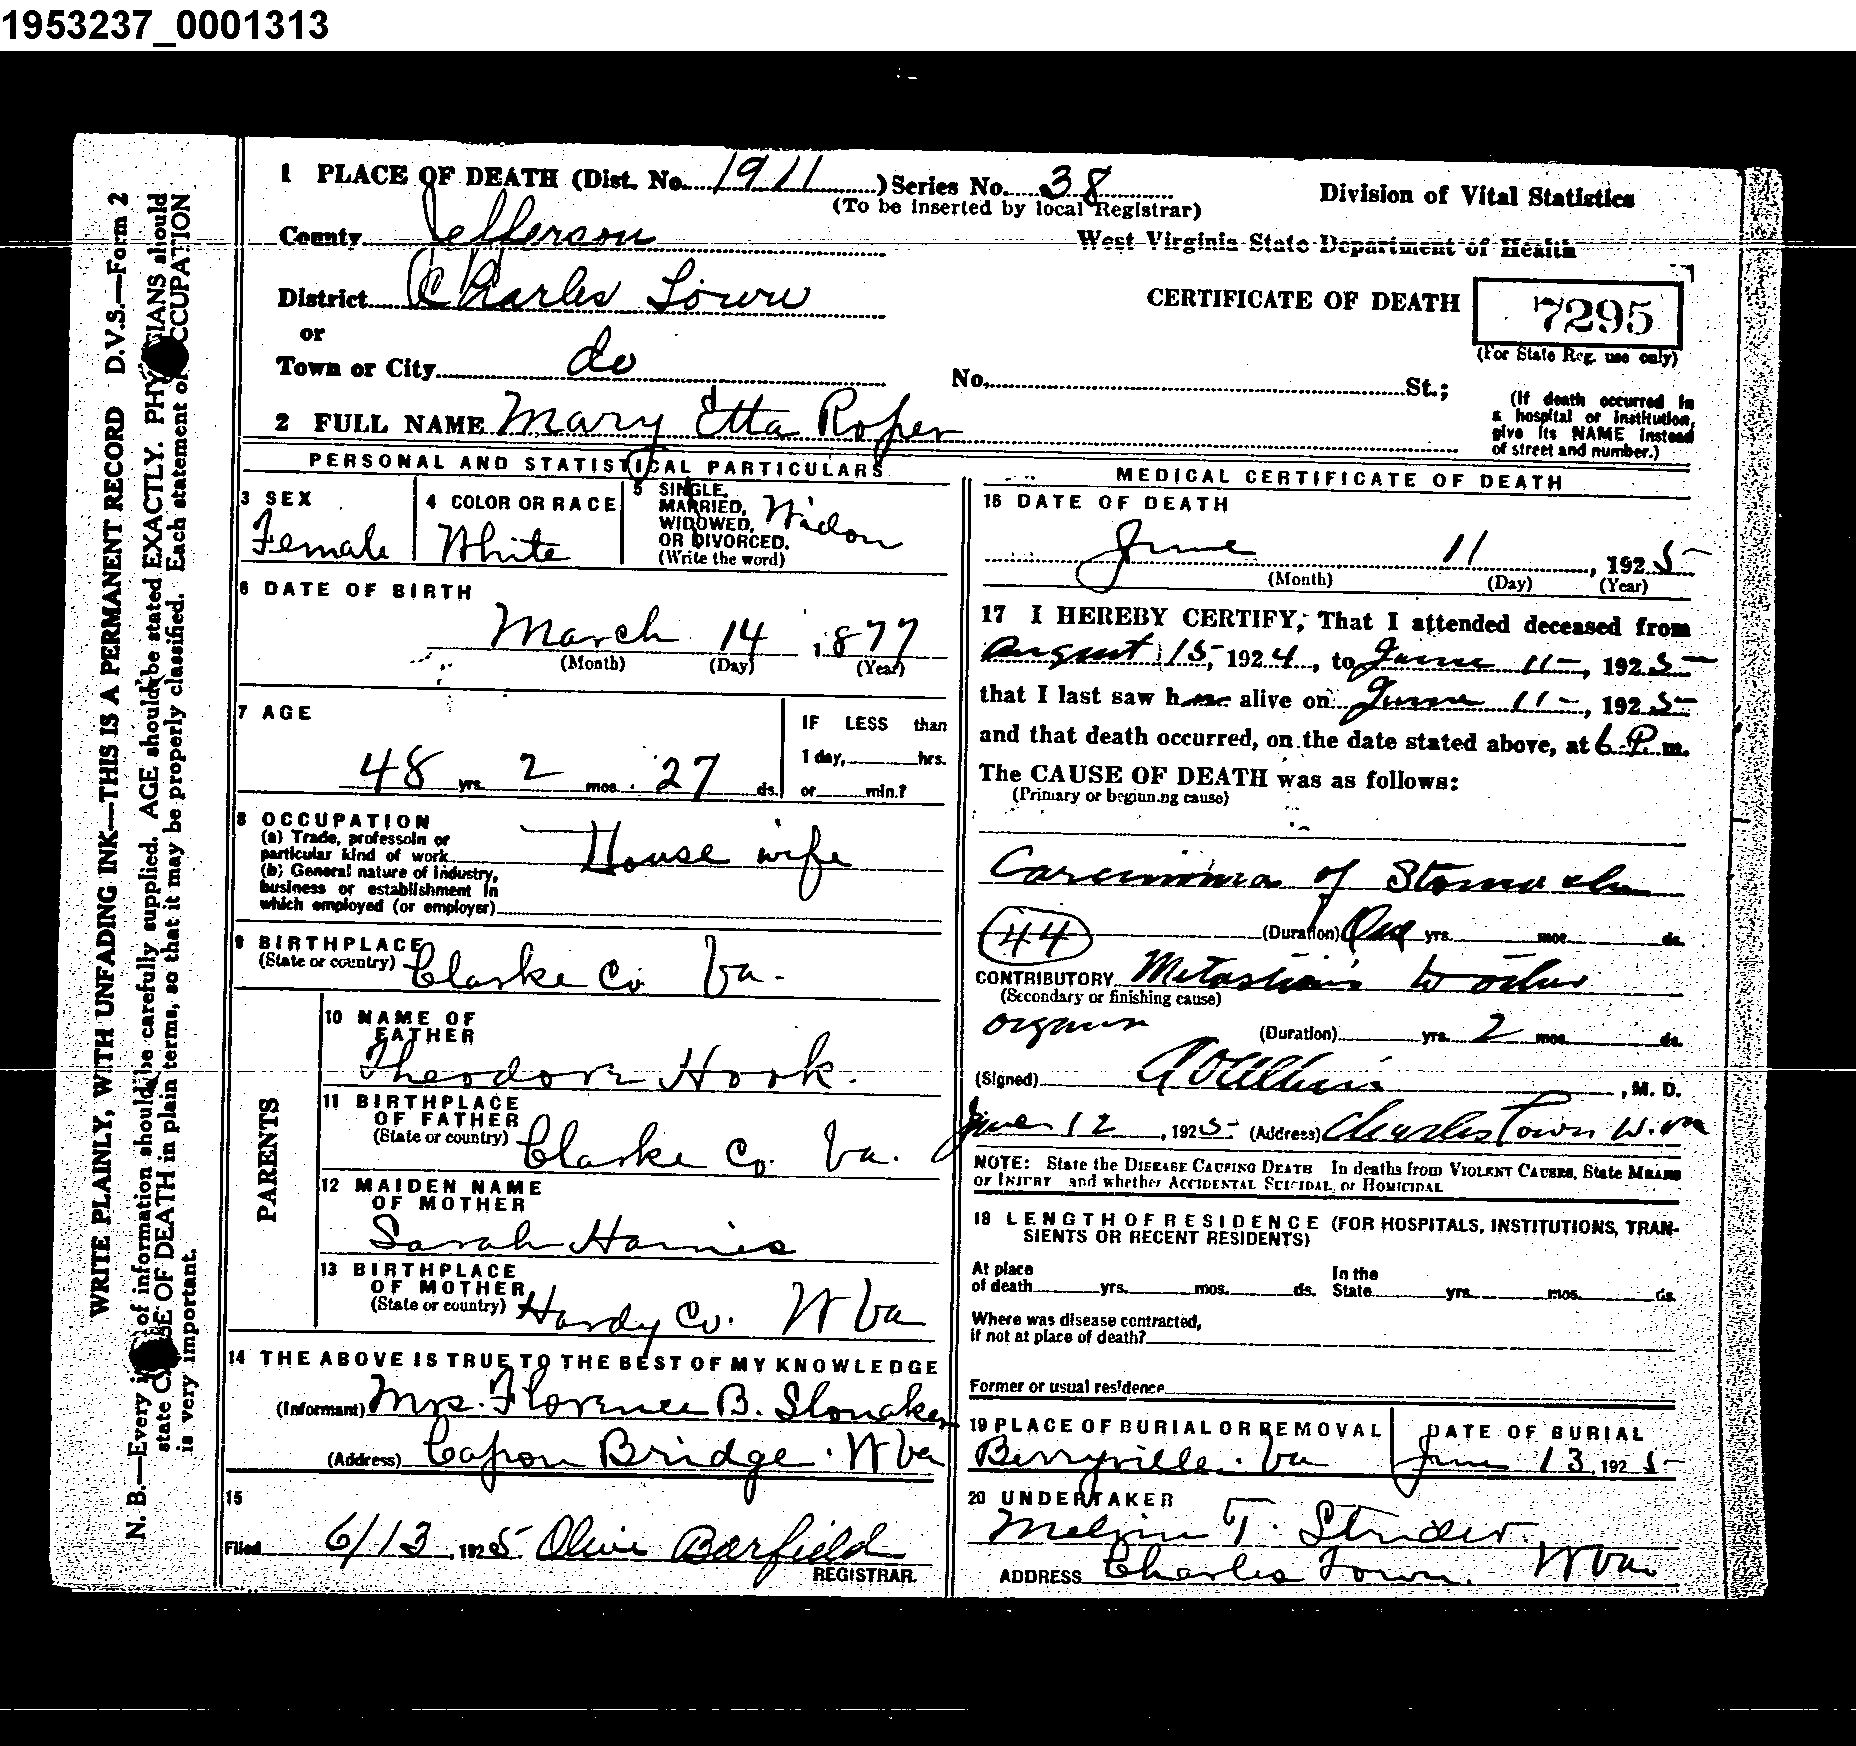 1953237_0001313
1 PLACE OF DEATH (Dist. No. 1911 ) Series No. 38
(To be inserted by local Registrar)
Division of Vital Statistics
West Virginia State Department of Health
County Jefferson
District Charles Town
or
Town or City do
CERTIFICATE OF DEATH 7295
(For State Reg. use only)
No. St.;
(If death occurred in
a hospital or institution,
give its NAME instead
of street and number.)
2 FULL NAME Mary Etta Roper
PERSONAL AND STATISTICAL PARTICULARS
3 SEX
Female
4 COLOR OR RACE
White
5 SINGLE,
MARRIED,
WIDOWED,
OR DIVORCED.
(Write the word)
Widow
6 DATE OF BIRTH
March 14 1877
(Month) (Day) (Year)
7 AGE
48 yrs. 2 mos. 27 ds.
IF LESS than
1 day, hrs.
or min.?
8 OCCUPATION
(a) Trade, professoin or
particular kind of work House wife
(b) General nature of Industry,
business or establishment in
which employed (or employer)
9 BIRTHPLACE
(State or country) Clarke Co Va.
PARENTS
10 NAME OF
FATHER
Theodore Hook.
11 BIRTHPLACE
OF FATHER
(State or country) Clarke Co. Va.
12 MAIDEN NAME
OF MOTHER
Sarah Haines
13 BIRTHPLACE
OF MOTHER
(State or country) Hardy Co. W Va
14 THE ABOVE IS TRUE TO THE BEST OF MY KNOWLEDGE
(Informant) Mrs. Florence B. Slonaker
(Address) Capon Bridge. W Va
15
Filed 6/13, 1925 Olive Barfield
REGISTRAR.
MEDICAL CERTIFICATE OF DEATH
16 DATE OF DEATH
June 11, 1925
(Month) (Day) (Year)
17 I HEREBY CERTIFY, That I attended deceased from
August 15, 1924, to June 11-, 1925
that I last saw her alive on June 11-, 1925
and that death occurred, on the date stated above, at 6 P. m.
The CAUSE OF DEATH was as follows:
(Primary or beginning cause)
Carcinoma of Stomach
44 (Duration) One yrs. mos. ds.
CONTRIBUTORY Metastasis to other
(Secondary or finishing cause)
organs (Duration) yrs. 2 mos. ds.
(Signed) , M. D.
June 12, 1925 (Address) Charles Town W. Va
NOTE: State the DISEASE CAUSING DEATH In deaths from VIOLENT CAUSES, State MEANS
OF INJURY and whether ACCIDENTAL SUICIDAL, or HOMICIDAL
18 LENGTH OF RESIDENCE (FOR HOSPITALS, INSTITUTIONS, TRAN-
SIENTS OR RECENT RESIDENTS)
At place
of death yrs. mos. ds.
In the
State yrs. mos. ds.
Where was disease contracted,
if not at place of death?
Former or usual residence
19 PLACE OF BURIAL OR REMOVAL
Berryville. Va
DATE OF BURIAL
June 13, 1925
20 UNDERTAKER
Melvin T. Strider
ADDRESS Charles Town. W Va
WRITE PLAINLY, WITH UNFADING INK—THIS IS A PERMANENT RECORD D.V.S.—Form 2
N. B.—Every of information should be carefully supplied. AGE should be stated EXACTLY. PHYSICIANS should
state CAUSE OF DEATH in plain terms, so that it may be properly classified. Each statement of OCCUPATION
is very important.